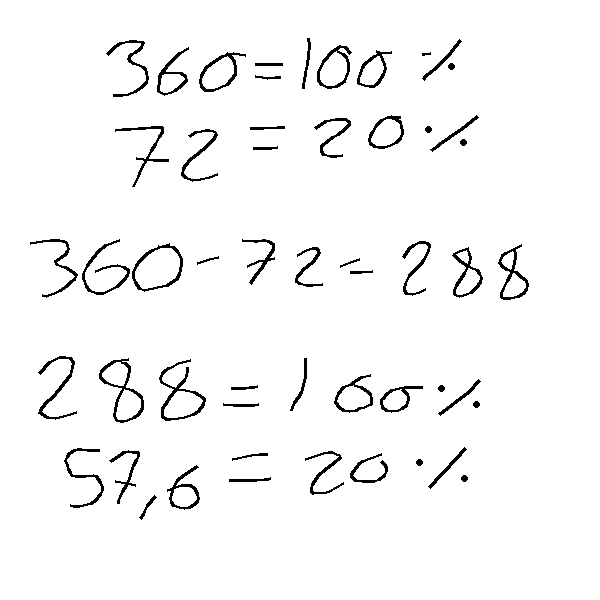 360 = 100 %
72 = 20 %
360 - 72 = 288
288 = 100 %
57,6 = 20 %